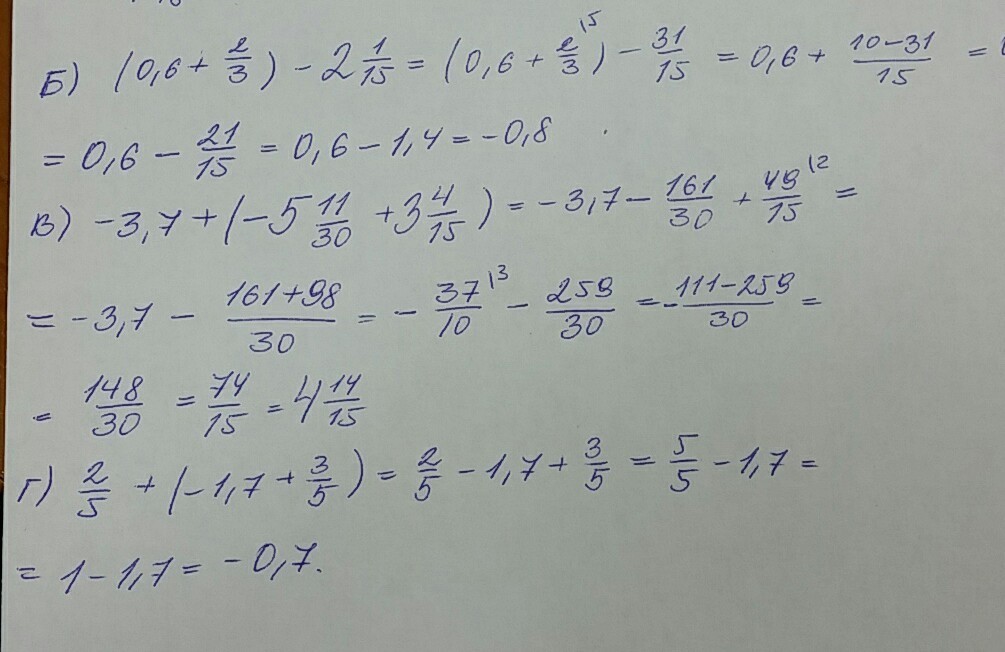 Б) (0,6 + 2/3) - 2 1/15 = (0,6 + 2/3 \5) - 31/15 = 0,6 + (10-31)/15 =
= 0,6 - 21/15 = 0,6 - 1,4 = -0,8
В) -3,7 + (-5 11/30 + 3 4/15) = -3,7 - 161/30 + 49/15 \2 =
= -3,7 - (161+98)/30 = - 37/10 \3 - 259/30 = - (111-259)/30 =
= 148/30 = 74/15 = 4 14/15
Г) 2/5 + (-1,7 + 3/5) = 2/5 - 1,7 + 3/5 = 5/5 - 1,7 =
= 1 - 1,7 = -0,7.